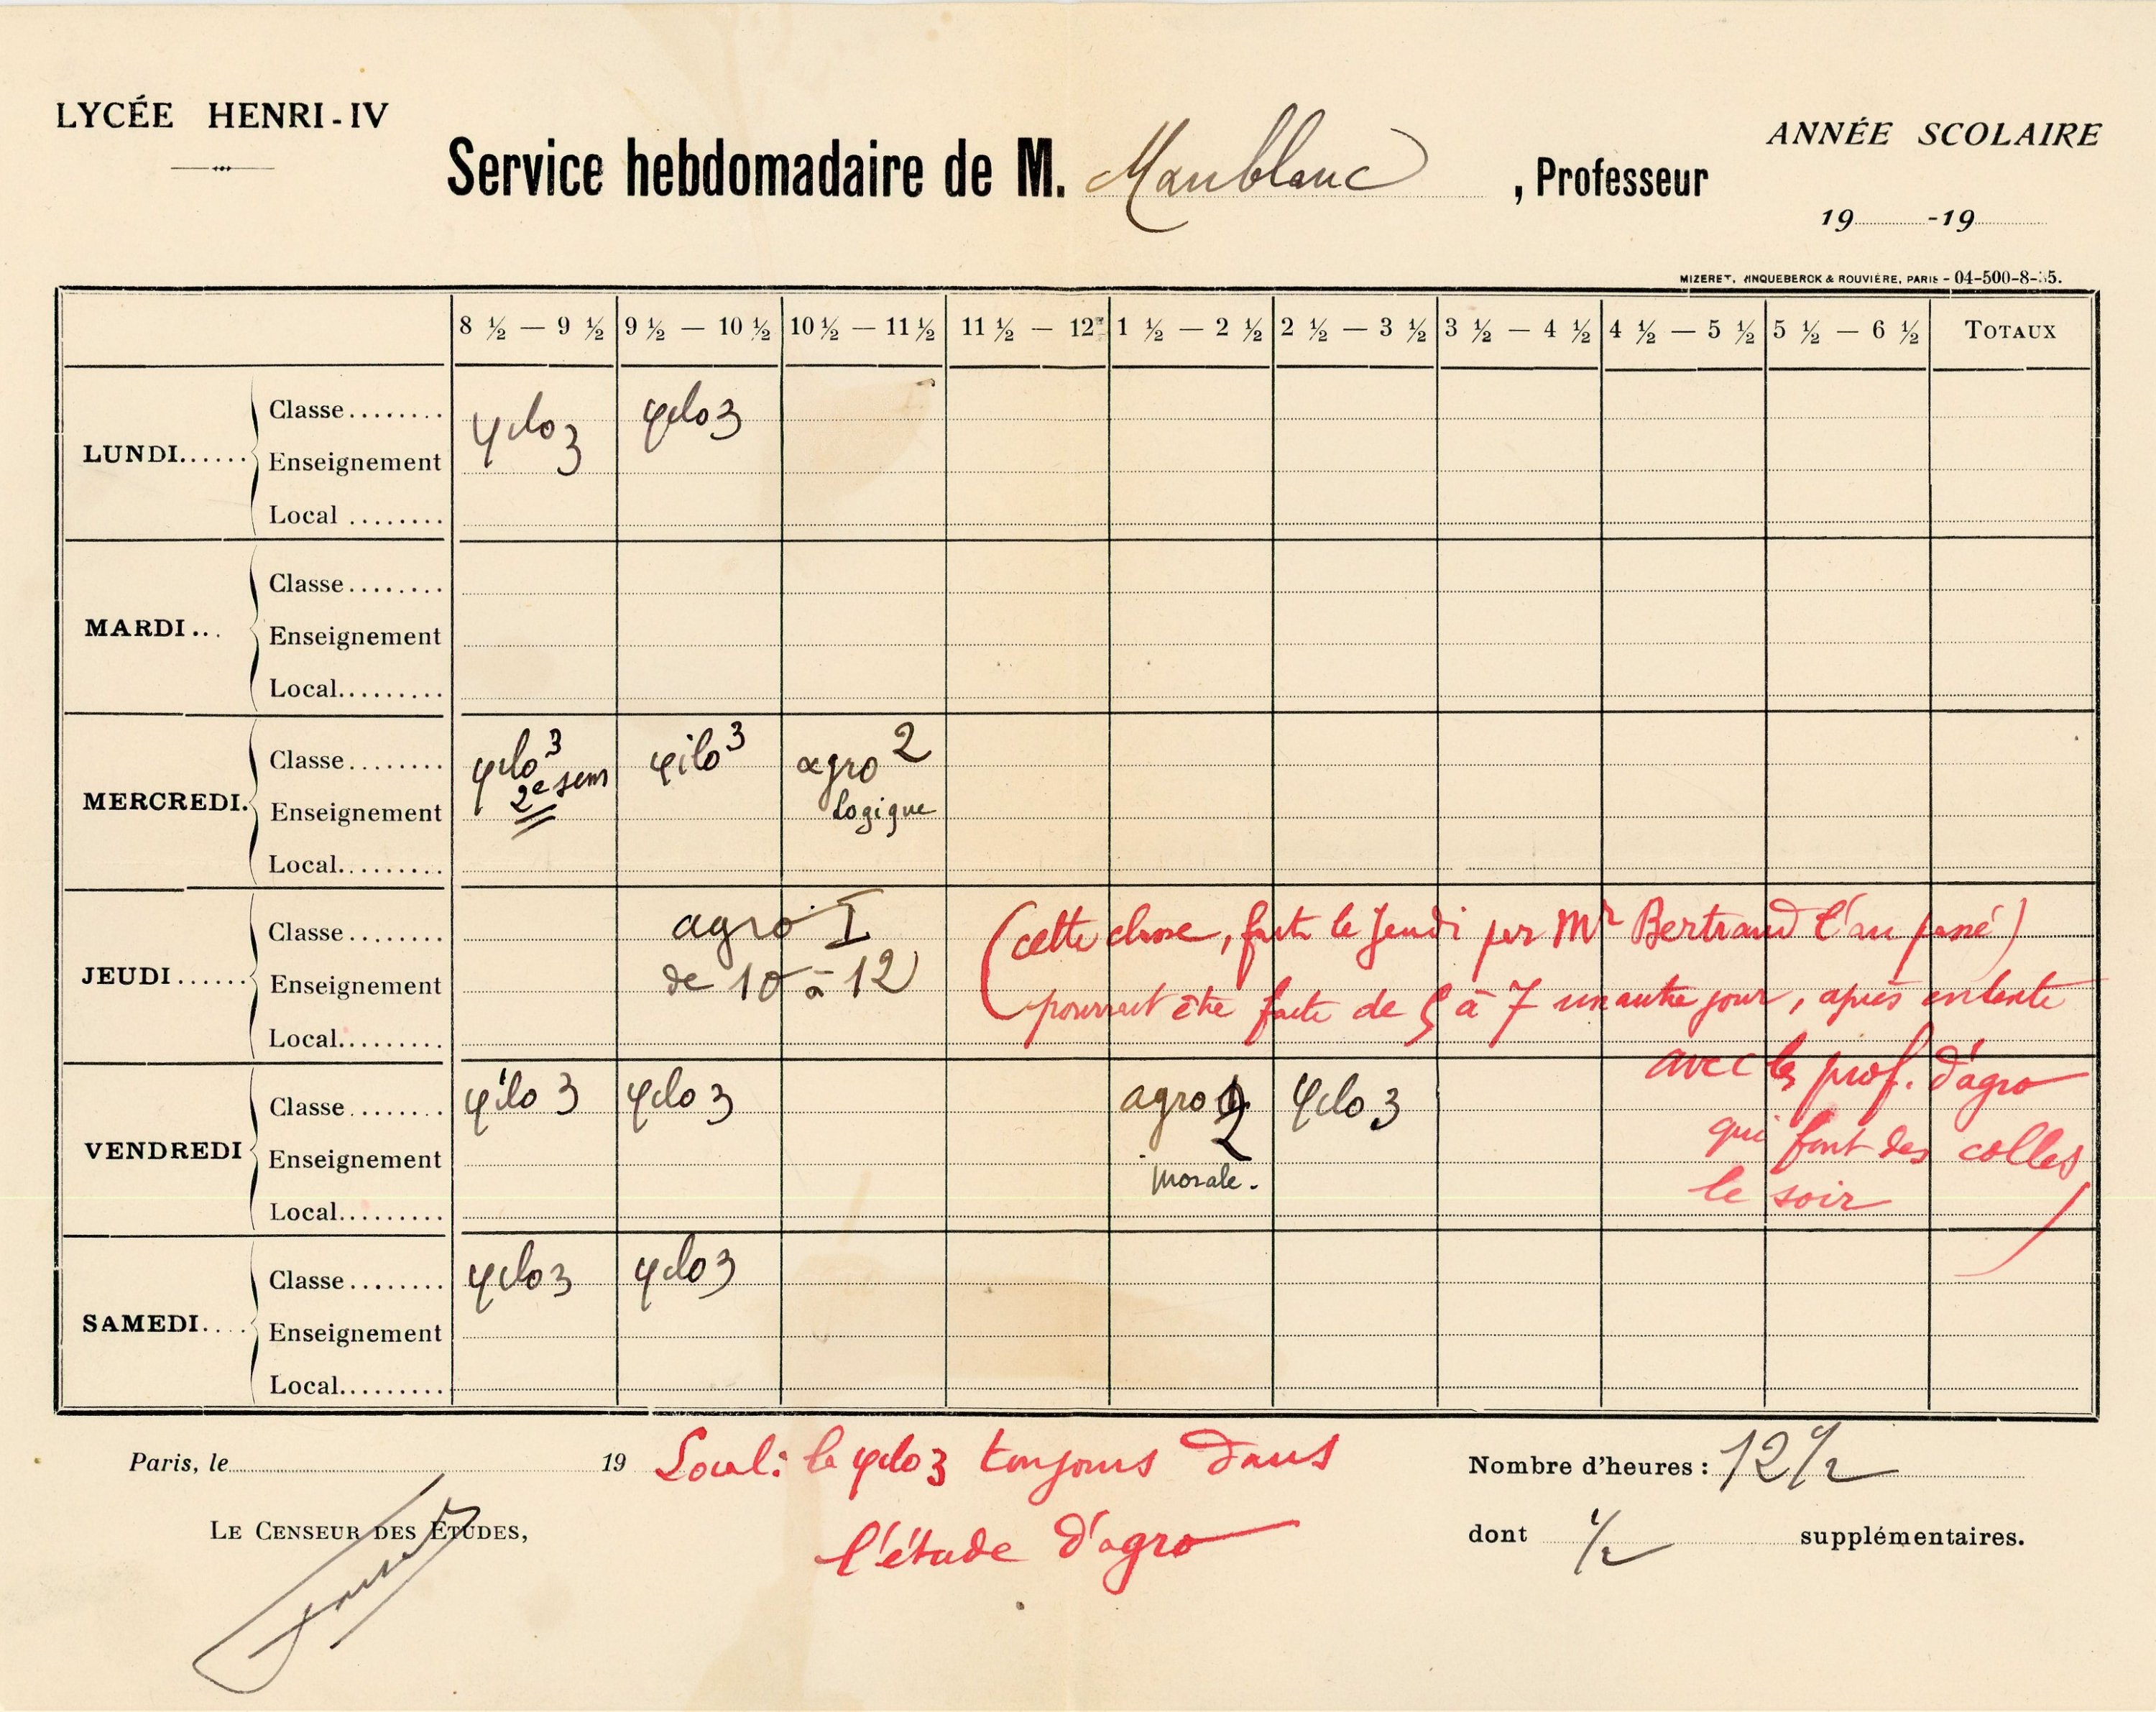 LYCÉE HENRI-IV
Service hebdomadaire de M. Maublanc, Professeur
ANNÉE SCOLAIRE
19 -19
MIZERET, PARIS - 04-500-8-35.
8 ½ — 9 ½ 9 ½ — 10 ½ 10 ½ — 11 ½ 11 ½ — 12 1 ½ — 2 ½ 2 ½ — 3 ½ 3 ½ — 4 ½ 4 ½ — 5 ½ 5 ½ — 6 ½ TOTAUX
LUNDI...... Classe........ φilo 3 φilo 3
Enseignement
Local ........
MARDI... Classe........
Enseignement
Local.........
MERCREDI. Classe........ φilo 3 φilo 3 agro 2
2e sem
Enseignement logique
Local.........
JEUDI...... Classe........ agro I (cette classe, faite le Jeudi par Mr Bertrand l'an passé)
Enseignement de 10 à 12 pourrait être faite de 5 à 7 un autre jour, après entente
Local.........
avec les prof. d'agro
VENDREDI Classe........ φilo 3 φilo 3 agro 2 φilo 3
qui font des colles
Enseignement morale.
le soir)
Local.........
SAMEDI.... Classe........ φilo 3 φilo 3
Enseignement
Local.........
Paris, le 19
Local: la φilo 3 toujours dans
l'étude d'agro
Nombre d'heures : 12 ½
LE CENSEUR DES ÉTUDES,
dont ½ supplémentaires.